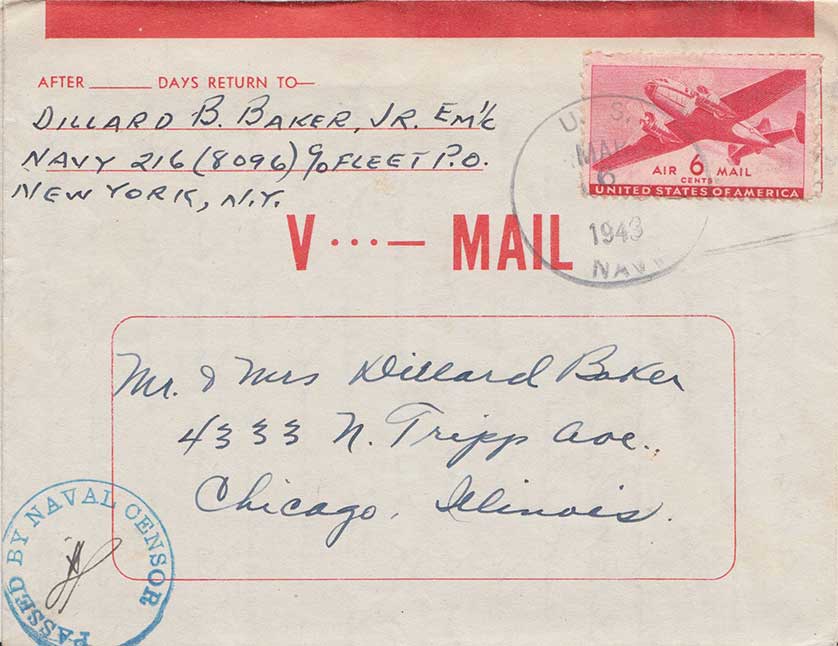 AFTER ______ DAYS RETURN TO—
DILLARD B. BAKER, JR. EM 1/c
NAVY 216 (8096) c/o FLEET P.O.
NEW YORK, N.Y.
AIR 6 MAIL
CENTS
UNITED STATES OF AMERICA
U. S.
6
1943
NAVY
V ···— MAIL
Mr. & Mrs Dillard Baker
4333 N. Tripp Ave.
Chicago, Illinois.
PASSED BY NAVAL CENSOR